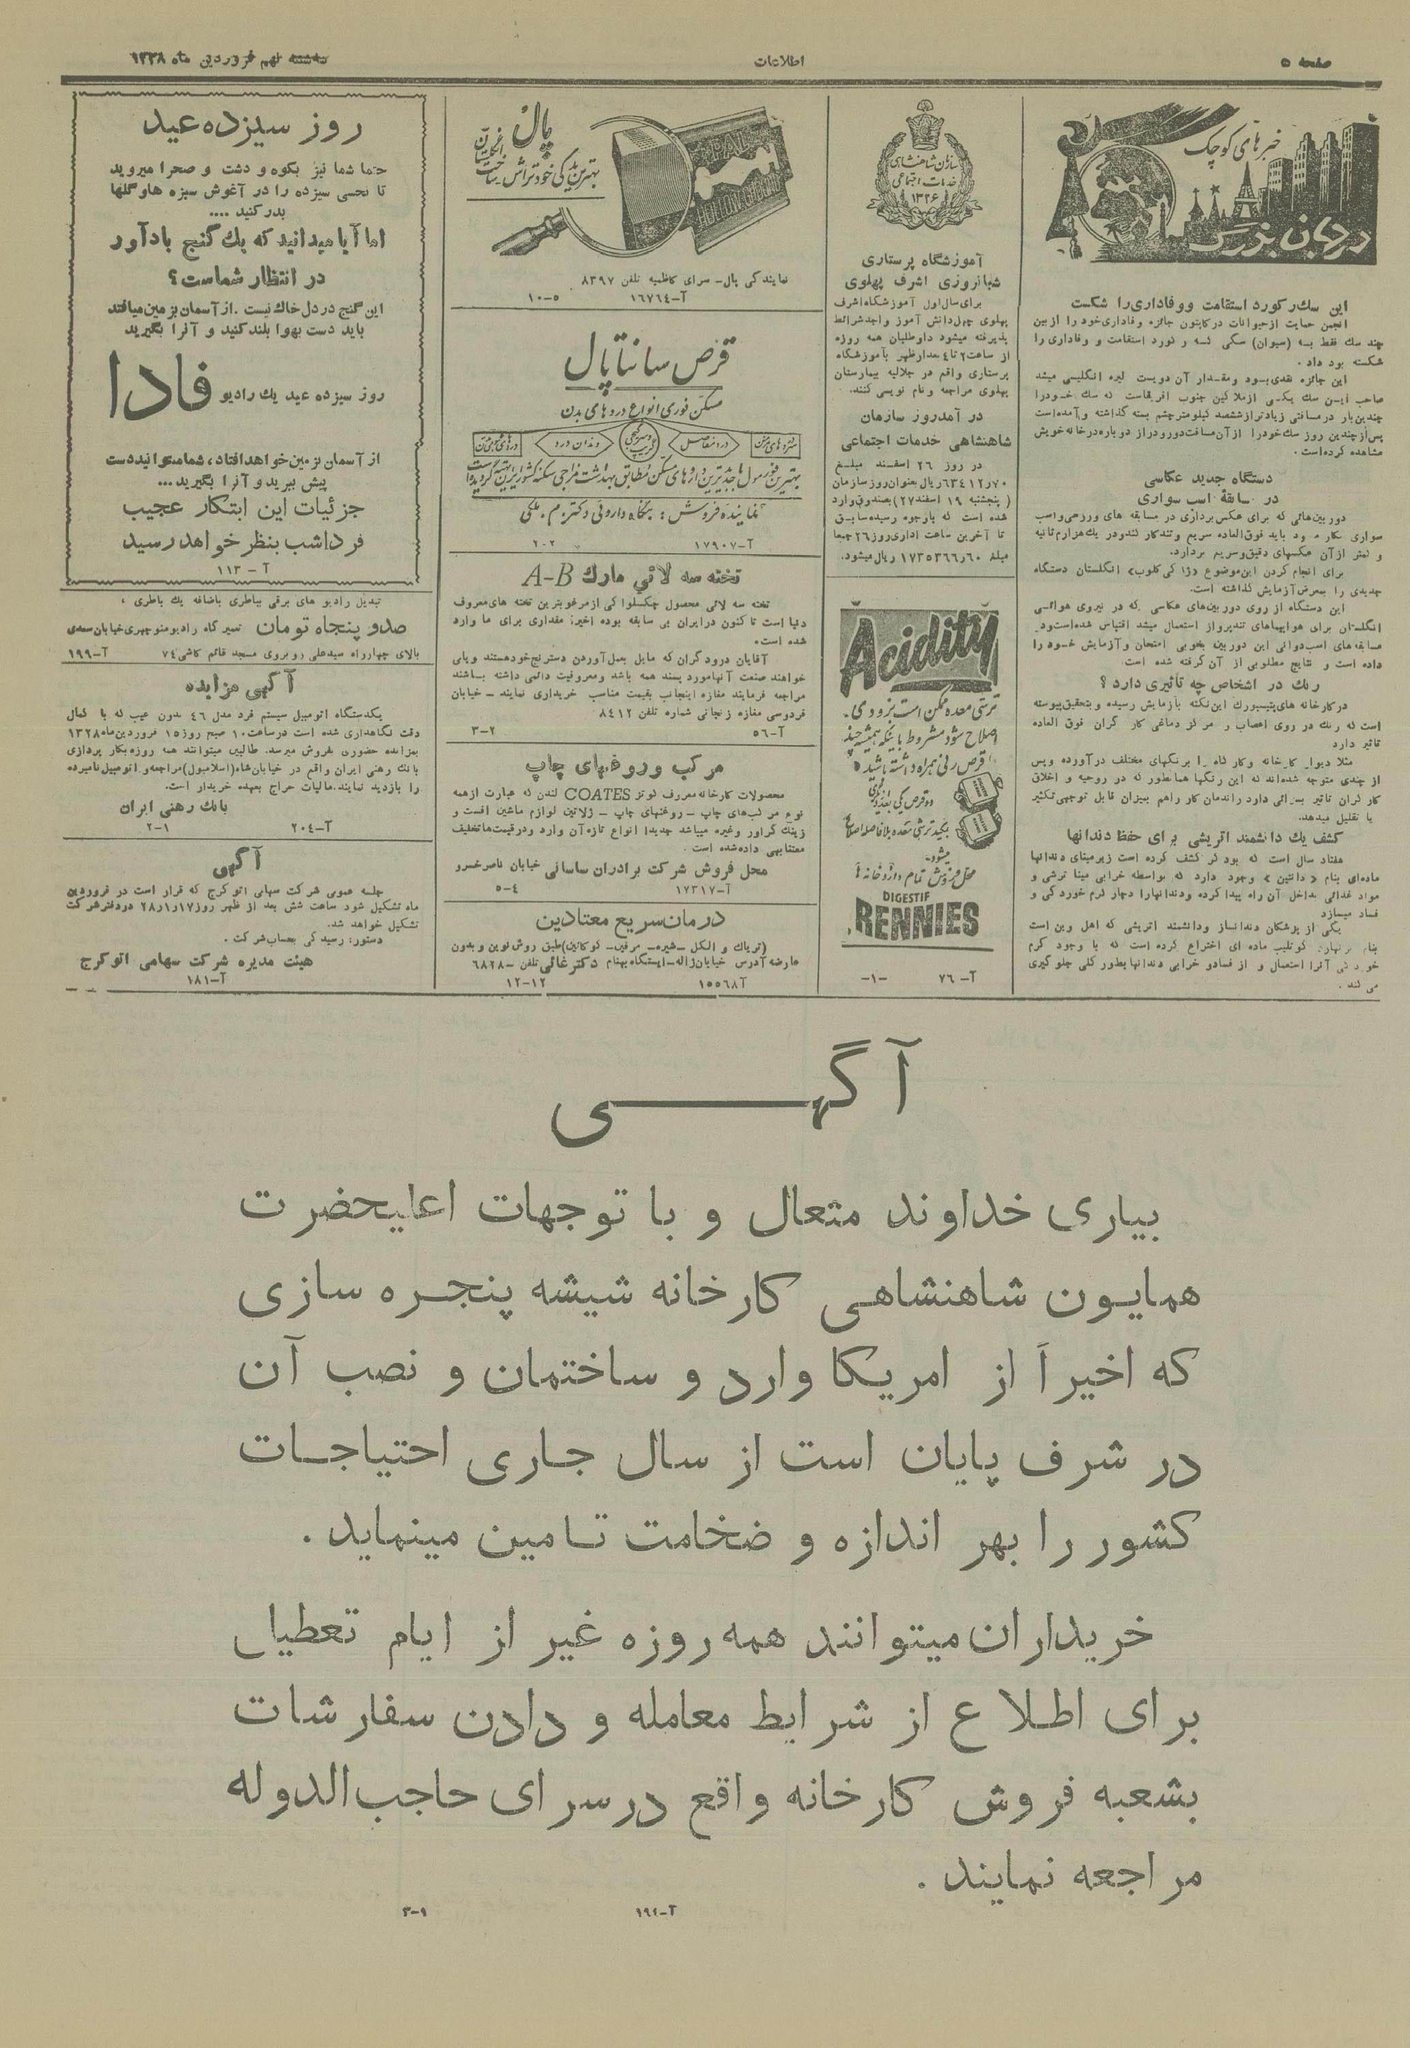 صفحه ۵
اطلاعات
سه‌شنبه نهم فروردین ماه ۱۳۲۸
خبرهای کوچک
در جهان بزرگ
این سگ رکورد استقامت ووفاداری را شکست
انجمن حمایت از حیوانات در کاپتون جائزه وفاداری خود را از بین
شکسته بود داد .
این جائزه نقدی بود و مقدار آن دویست لیره انگلیسی میشد
صاحب این سگ یکی از ملاکین جنوب افریقا است که سگ خود را
چندین بار در مسافتی زیادتر از ششصد کیلومتر چشم بسته گذاشته و آمده است
پس از چندین روز سگ خود را از آن مسافت دور دراز دوباره در خانه خویش
مشاهده کرده است .
دستگاه جدید عکاسی
در سابقهٔ اسب سواری
دوربین‌هائی که برای عکس‌برداری در مسابقه های ورزشی واسب
برای انجام کردن این موضوع «ژاکی کلوب» انگلستان دستگاه
جدیدی را بمعرض آزمایش گذاشته است.
این دستگاه از روی دوربین‌های عکاسی که در نیروی هوائی
انگلستان برای هواپیماهای تندپرواز استعمال میشد اقتباس شده است و در
مسابقه های اسب دوانی این دوربین بخوبی امتحان و آزمایش خود را
داده است و نتایج مطلوبی از آن گرفته شده است.
رنگ در اشخاص چه تأثیری دارد ؟
در کارخانه های پتیسبورگ این نکته بآزمایش رسیده و بتحقیق پیوسته
است که رنگ در روی اعصاب و مرکز دماغی کارگران فوق العاده
تاثیر دارد
مثلا دیوار کارخانه وکارگاه را برنگهای مختلف درآورده وپس
از چندی متوجه شده‌اند که این رنگها همانطور که در روحیه و اخلاق
کارگران تاثیر بسزائی دارد راندمان کار راهم بمیزان قابل توجهی تکثیر
یا تقلیل میدهد.
کشف یک دانشمند اتریشی برای حفظ دندانها
هفتاد سال است که بودکر کشف کرده است زیرمینای دندانها
ماده‌ای بنام «دانتین» وجود دارد که بواسطه خرابی مینا ترشی و
مواد غذائی بداخل آن راه پیدا کرده ودندانهارا دچار کرم خوردگی و
فساد میسازد
یکی از پزشکان دندانساز ودانشمند اتریشی که اهل وین است
سازمان شاهنشاهی
خدمات اجتماعی
۱۳۲۶
آموزشگاه پرستاری
شبانروزی اشرف پهلوی
برای سال اول آموزشگاه اشرف
پهلوی چهل دانش آموز واجد شرائط
پذیرفته میشود داوطلبان همه روزه
از ساعت ۲ تا ٤ بعدازظهر بآموزشگاه
پرستاری واقع در جلالیه بیمارستان
پهلوی مراجعه ونام نویسی کنند.
در آمد روز سازمان
شاهنشاهی خدمات اجتماعی
در روز ۲۶ اسفند مبلغ
۶۳٤۱۲٫۷۰ ریال بعنوان روز سازمان
(پنجشنبه ۱۹ اسفند ۲۷) بصندوق وارد
شده است که باوجوه رسیده سابق
تا آخرین ساعت اداری روز ۲۶ جمعا
مبلغ ۱۷۳۵۳۶۶٫۶۰ ریال میشود.
Acidity
ترشی معده ممکن است بزودی
اصلاح شود مشروط باینکه همیشه چند
قرص رنی همراه داشته باشید
محل فروش تمام داروخانه ها
DIGESTIF
RENNIES
آ- ۷۶
-۱-
پال
بهترین تیغ خودتراش ساخت انگلستان
PAL
HOLLOW GROUND
نمایندگی پال- سرای کاظمیه تلفن ۸۳۹۷
آ-۱۶۷۶٤
۵-۱۰
قرص سانتاپال
مسکن فوری انواع دردهای بدن
درد مفاصل
دندان درد
نماینده فروش : بنگاه داروئی دکتر م . ملکی
آ-۱۷۹۰۷
۲-۲
تخته سه لائی مارك A-B
تخته سه لائی محصول چکسلواکی از مرغوبترین تخته های معروف
دنیا است تا کنون در ایران بی سابقه بوده اخیرا مقداری برای ما وارد
شده است.
آقایان درودگران که مایل بعمل آوردن دسترنج خود هستند وبلی
خواهند صنعت آنها مورد پسند همه باشد ومعروفیت دائمی داشته باشند
مراجعه فرمایند مغازه اینجانب بقیمت مناسب خریداری نمایند - خیابان
فردوسی مغازه زنجانی شماره تلفن ۸٤۱۲
آ-۵۶
۲-۳
مرکب وروغنهای چاپ
محصولات کارخانه معروف کوتز COATES لندن که عبارت ازهمه
نوع مرکب‌های چاپ - روغنهای چاپ - ژلاتین لوازم ماشین افست و
زینک گراور وغیره میباشد جدیدا انواع تازه آن وارد ودرقیمت‌ها تخفیف
معتنابهی داده شده است .
محل فروش شرکت برادران ساسانی خیابان ناصرخسرو
آ-۱۷۳۱۷
٤-۵
درمان سریع معتادین
(تریاک و الکل - شیره- مرفین- کوکائین) طبق روش نوین و بدون
عارضه آدرس خیابان ژاله- ایستگاه بهنام دکتر غائی تلفن -۶۸۲۸
آ۱۵۵۶۸
۱۲-۱۲
روز سیزده عید
حتما شما نیز بکوه و دشت و صحرا میروید
تا نحسی سیزده را در آغوش سبزه ها و گلها
بدر کنید ....
اما آیا میدانید که یك گنج بادآور
در انتظار شماست ؟
این گنج در دل خاك نیست . از آسمان بزمین میافتد
باید دست بهوا بلند کنید و آنرا بگیرید
روز سیزده عید یك رادیو فادا
از آسمان بزمین خواهد افتاد، شما میتوانید دست
پیش ببرید و آنرا بگیرید...
جزئیات این ابتکار عجیب
فرداشب بنظر خواهد رسید
آ - ۱۱۳
تبدیل رادیو های برقی بباطری باضافه یك باطری ،
صدو پنجاه تومان تعمیر گاه رادیو منوچهری خیابان سعدی
بالای چهارراه سیدعلی روبروی مسجد قائم کاشی ۷٤ آ-۱۹۹
آگهی مزایده
یکدستگاه اتومبیل سیستم فرد مدل ٤۶ بدون عیب که با کمال
دقت نگاهداری شده است در ساعت ۱۰ صبح روز ۱۵ فروردین ماه ۱۳۲۸
بمزایده حضوری بفروش میرسد. طالبین میتوانند همه روزه بکار پردازی
بانك رهنی ایران واقع در خیابان شاه (اسلامبول) مراجعه و اتومبیل نامبرده
را بازدید نمایند. مالیات حراج بعهده خریدار است.
بانك رهنی ایران
آ-۲۰٤
۱-۲
آگهی
جلسه عمومی شرکت سهامی اتوکرج که قرار است در فروردین
ماه تشکیل شود ساعت شش بعد از ظهر روز ۲۸/۱/۱۷ در دفتر شرکت
تشکیل خواهد شد.
دستور: رسیدگی بحساب شرکت .
هیئت مدیره شرکت سهامی اتوکرج
آ-۱۸۱
آگهی
بیاری خداوند متعال و با توجهات اعلیحضرت
همایون شاهنشاهی کارخانه شیشه پنجره سازی
که اخیراً از امریکا وارد و ساختمان و نصب آن
در شرف پایان است از سال جاری احتیاجات
کشور را بهر اندازه و ضخامت تامین مینماید.
خریداران میتوانند همه روزه غیر از ایام تعطیل
برای اطلاع از شرایط معامله و دادن سفارشات
بشعبه فروش کارخانه واقع در سرای حاجب‌الدوله
مراجعه نمایند .
آ-۱۹۱
۱-۳